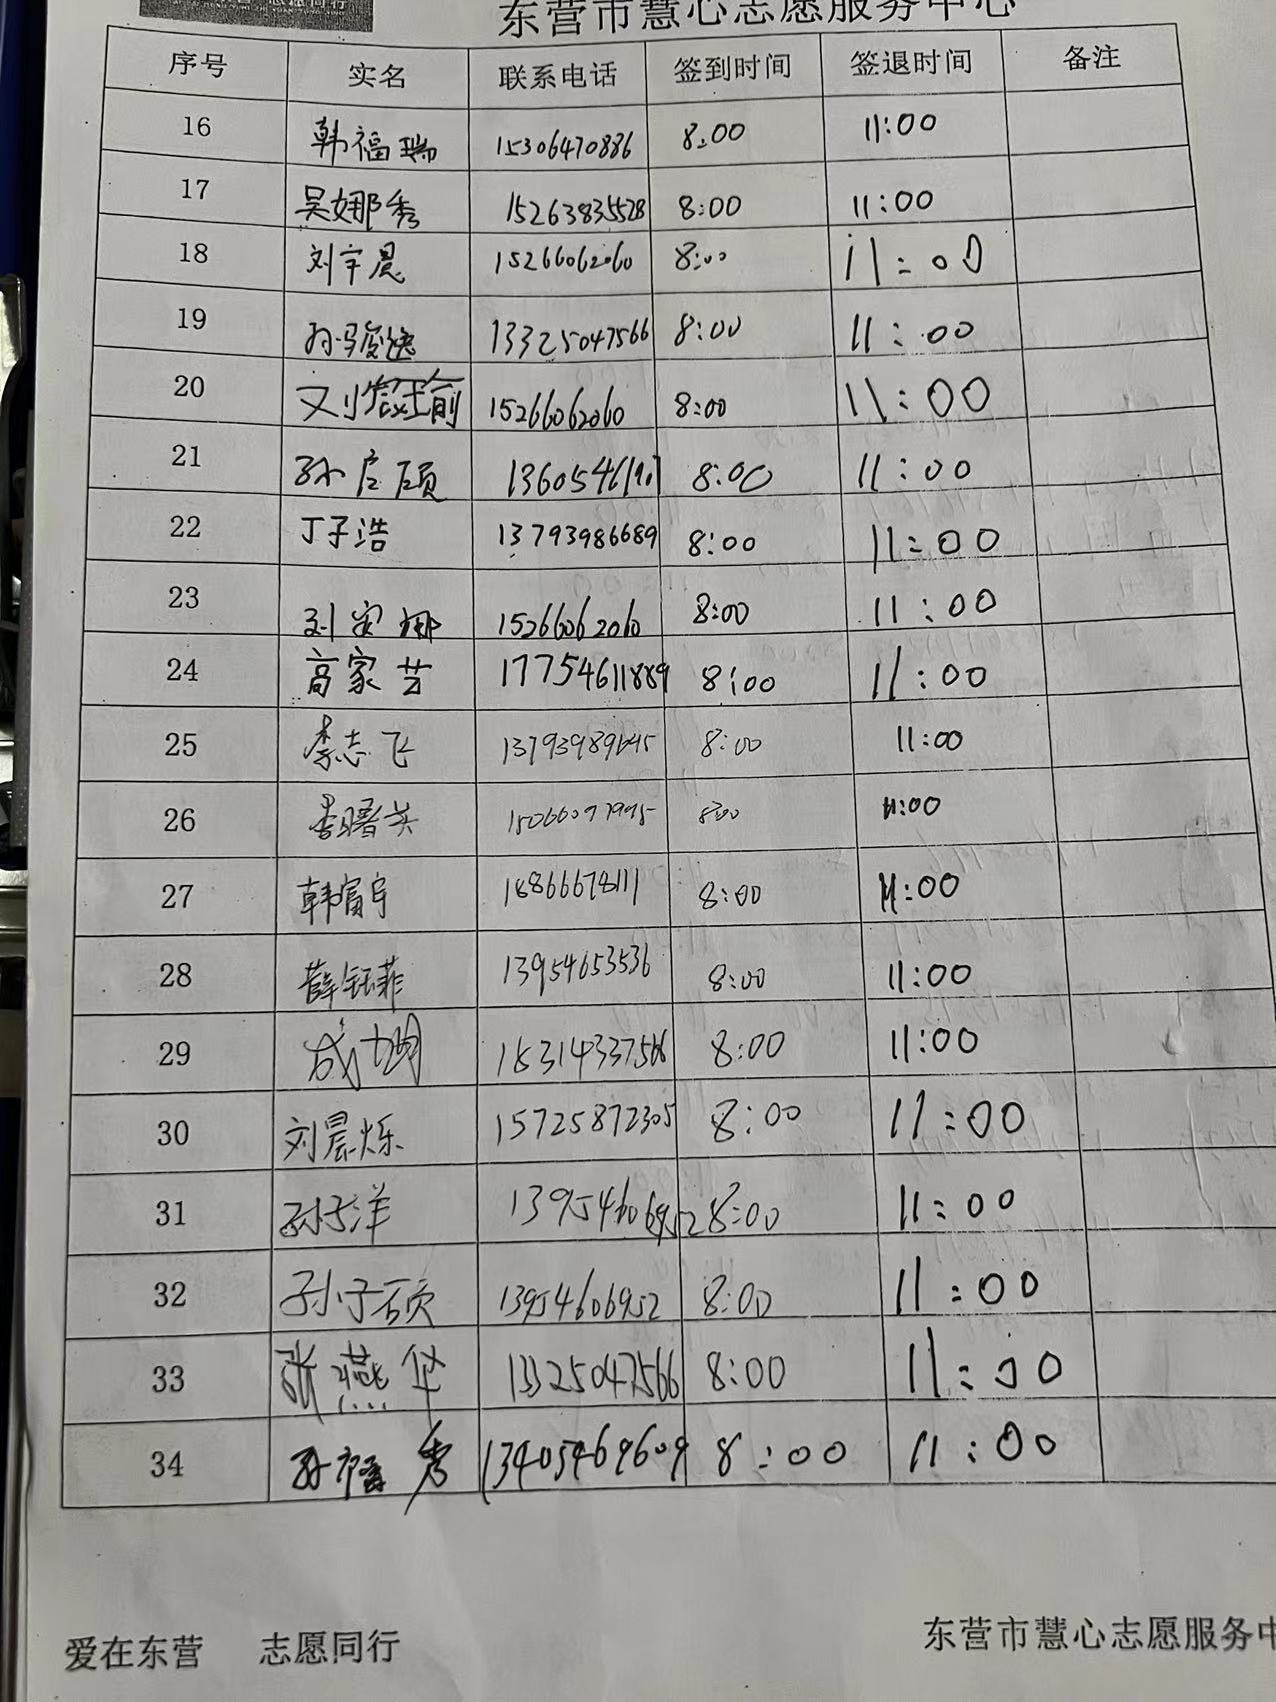 志愿同行
东营市慧心志愿服务中心
序号 实名 联系电话 签到时间 签退时间 备注
16 韩福瑞 15306470886 8:00 11:00
17 吴娜秀 15263835528 8:00 11:00
18 刘宇晨 15266062060 8:00 11:00
19 孙骏逸 13325047566 8:00 11:00
20 15266062060 8:00 11:00
21 8:00 11:00
22 丁子浩 13793986689 8:00 11:00
23 15266062060 8:00 11:00
24 高家芸 17754611889 8:00 11:00
25 李志飞 8:00 11:00
26 15066097995 8:00 11:00
27 韩富宇 18866678111 8:00 11:00
28 薛钰菲 13954653536 8:00 11:00
29 18314337566 8:00 11:00
30 刘晨烁 15725872305 8:00 11:00
31 孙子洋 13954606952 8:00 11:00
32 孙子硕 13954606952 8:00 11:00
33 张燕华 13325047566 8:00 11:00
34 孙福秀 13405469609 8:00 11:00
爱在东营 志愿同行
东营市慧心志愿服务中